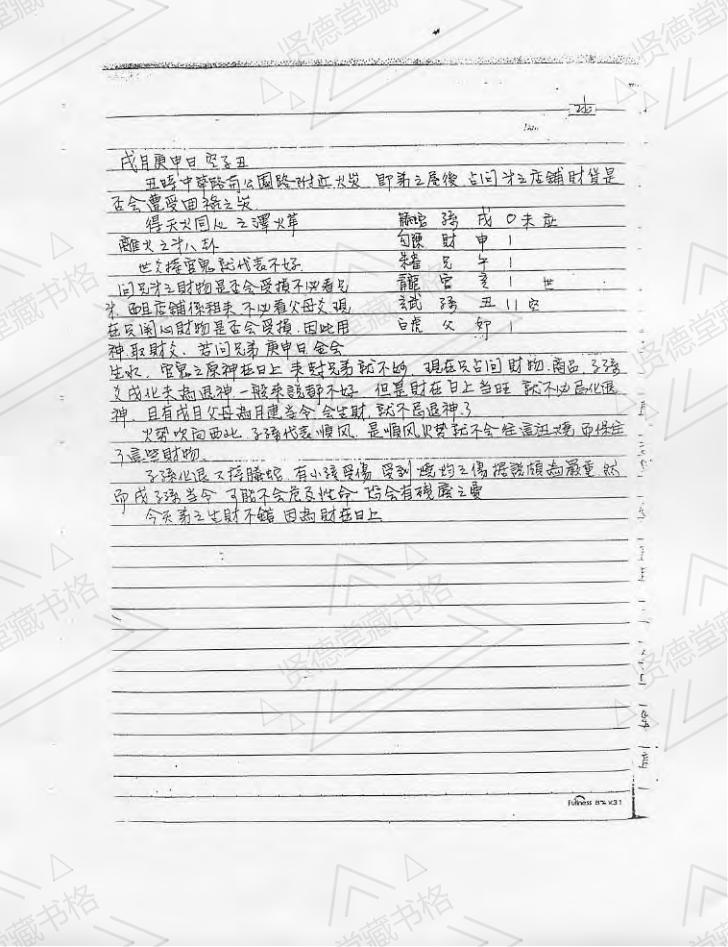 戌月庚申日 空子丑
丑時中華路前公園路附近火災 即弟之屋後 占問弟之店鋪財貨是
否會遭受回祿之災
得天火同人 之澤火革 螣蛇 孫 戌 O 未 應
離火之第八卦 勾陳 財 申 1
世爻持官鬼就代表不好 朱雀 兄 午 1
問兄弟之財物是否會受損不必看兄 青龍 官 亥 1 世
弟 而且店鋪係租來 不必看父母爻 現 玄武 孫 丑 11 空
在只關心財物是否會受損 因此用 白虎 父 卯 1
神取財爻 若問兄弟 庚申日 金會
生水 官鬼之原神在日上 來剋兄弟就不好 現在只占問財物 商品 子孫
爻戌化未為退神 一般來說都不好 但是財在日上當旺 就不必忌化退
神 且有戌月父母為月建當令 會生財 就不忌退神了
火勢吹向西北 子孫代表順風 是順風火勢就不會往這汪燒 而保住
了這些財物
子孫化退 又持螣蛇 有小孩受傷 受到 燒灼之傷 據說頗為嚴重 然
而戌子孫當令 可能不會危及性命
今天弟之生財不錯 因為財在日上
Fullness
贤德堂藏书格